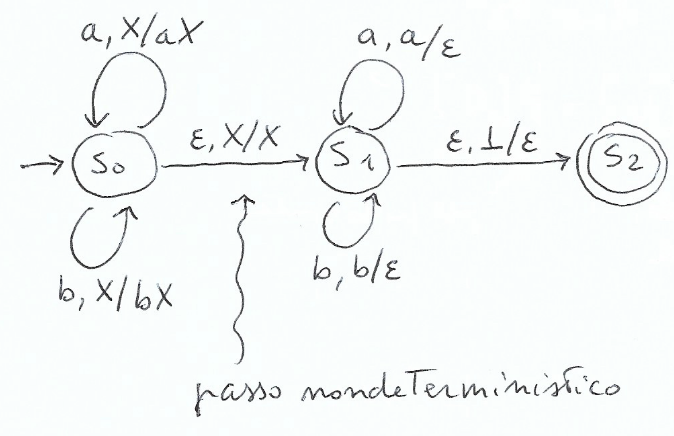 a, X/aX
a, a/ε
ε, X/X
ε, ⊥/ε
S0
S1
S2
b, X/bX
b, b/ε
passo nondeterministico